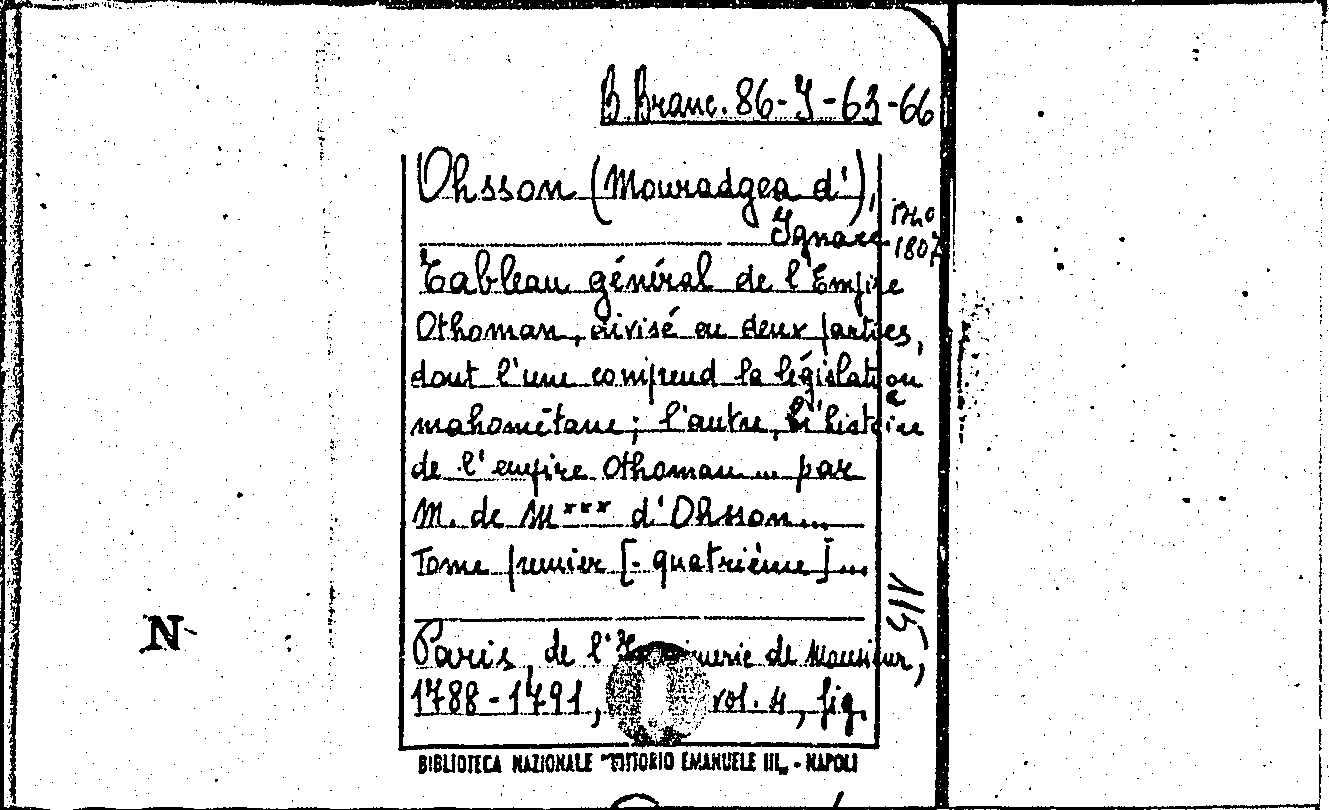 B. Branc. 86-J-63-66
Ohsson (Mouradgea d'),
Ignace 1740
1807
Tableau général de l'Empire
Othoman, divisé en deux parties,
dont l'une comprend la législation
mahométane; l'autre, l'histoire
de l'empire Othoman... par
M. de M*** d'Ohsson...
Tome premier [-quatrième]...
Paris, de l'Imprimerie de Monsieur,
1788-1791, vol. 4, fig.
N
BIBLIOTECA NAZIONALE "VITTORIO EMANUELE III" - NAPOLI